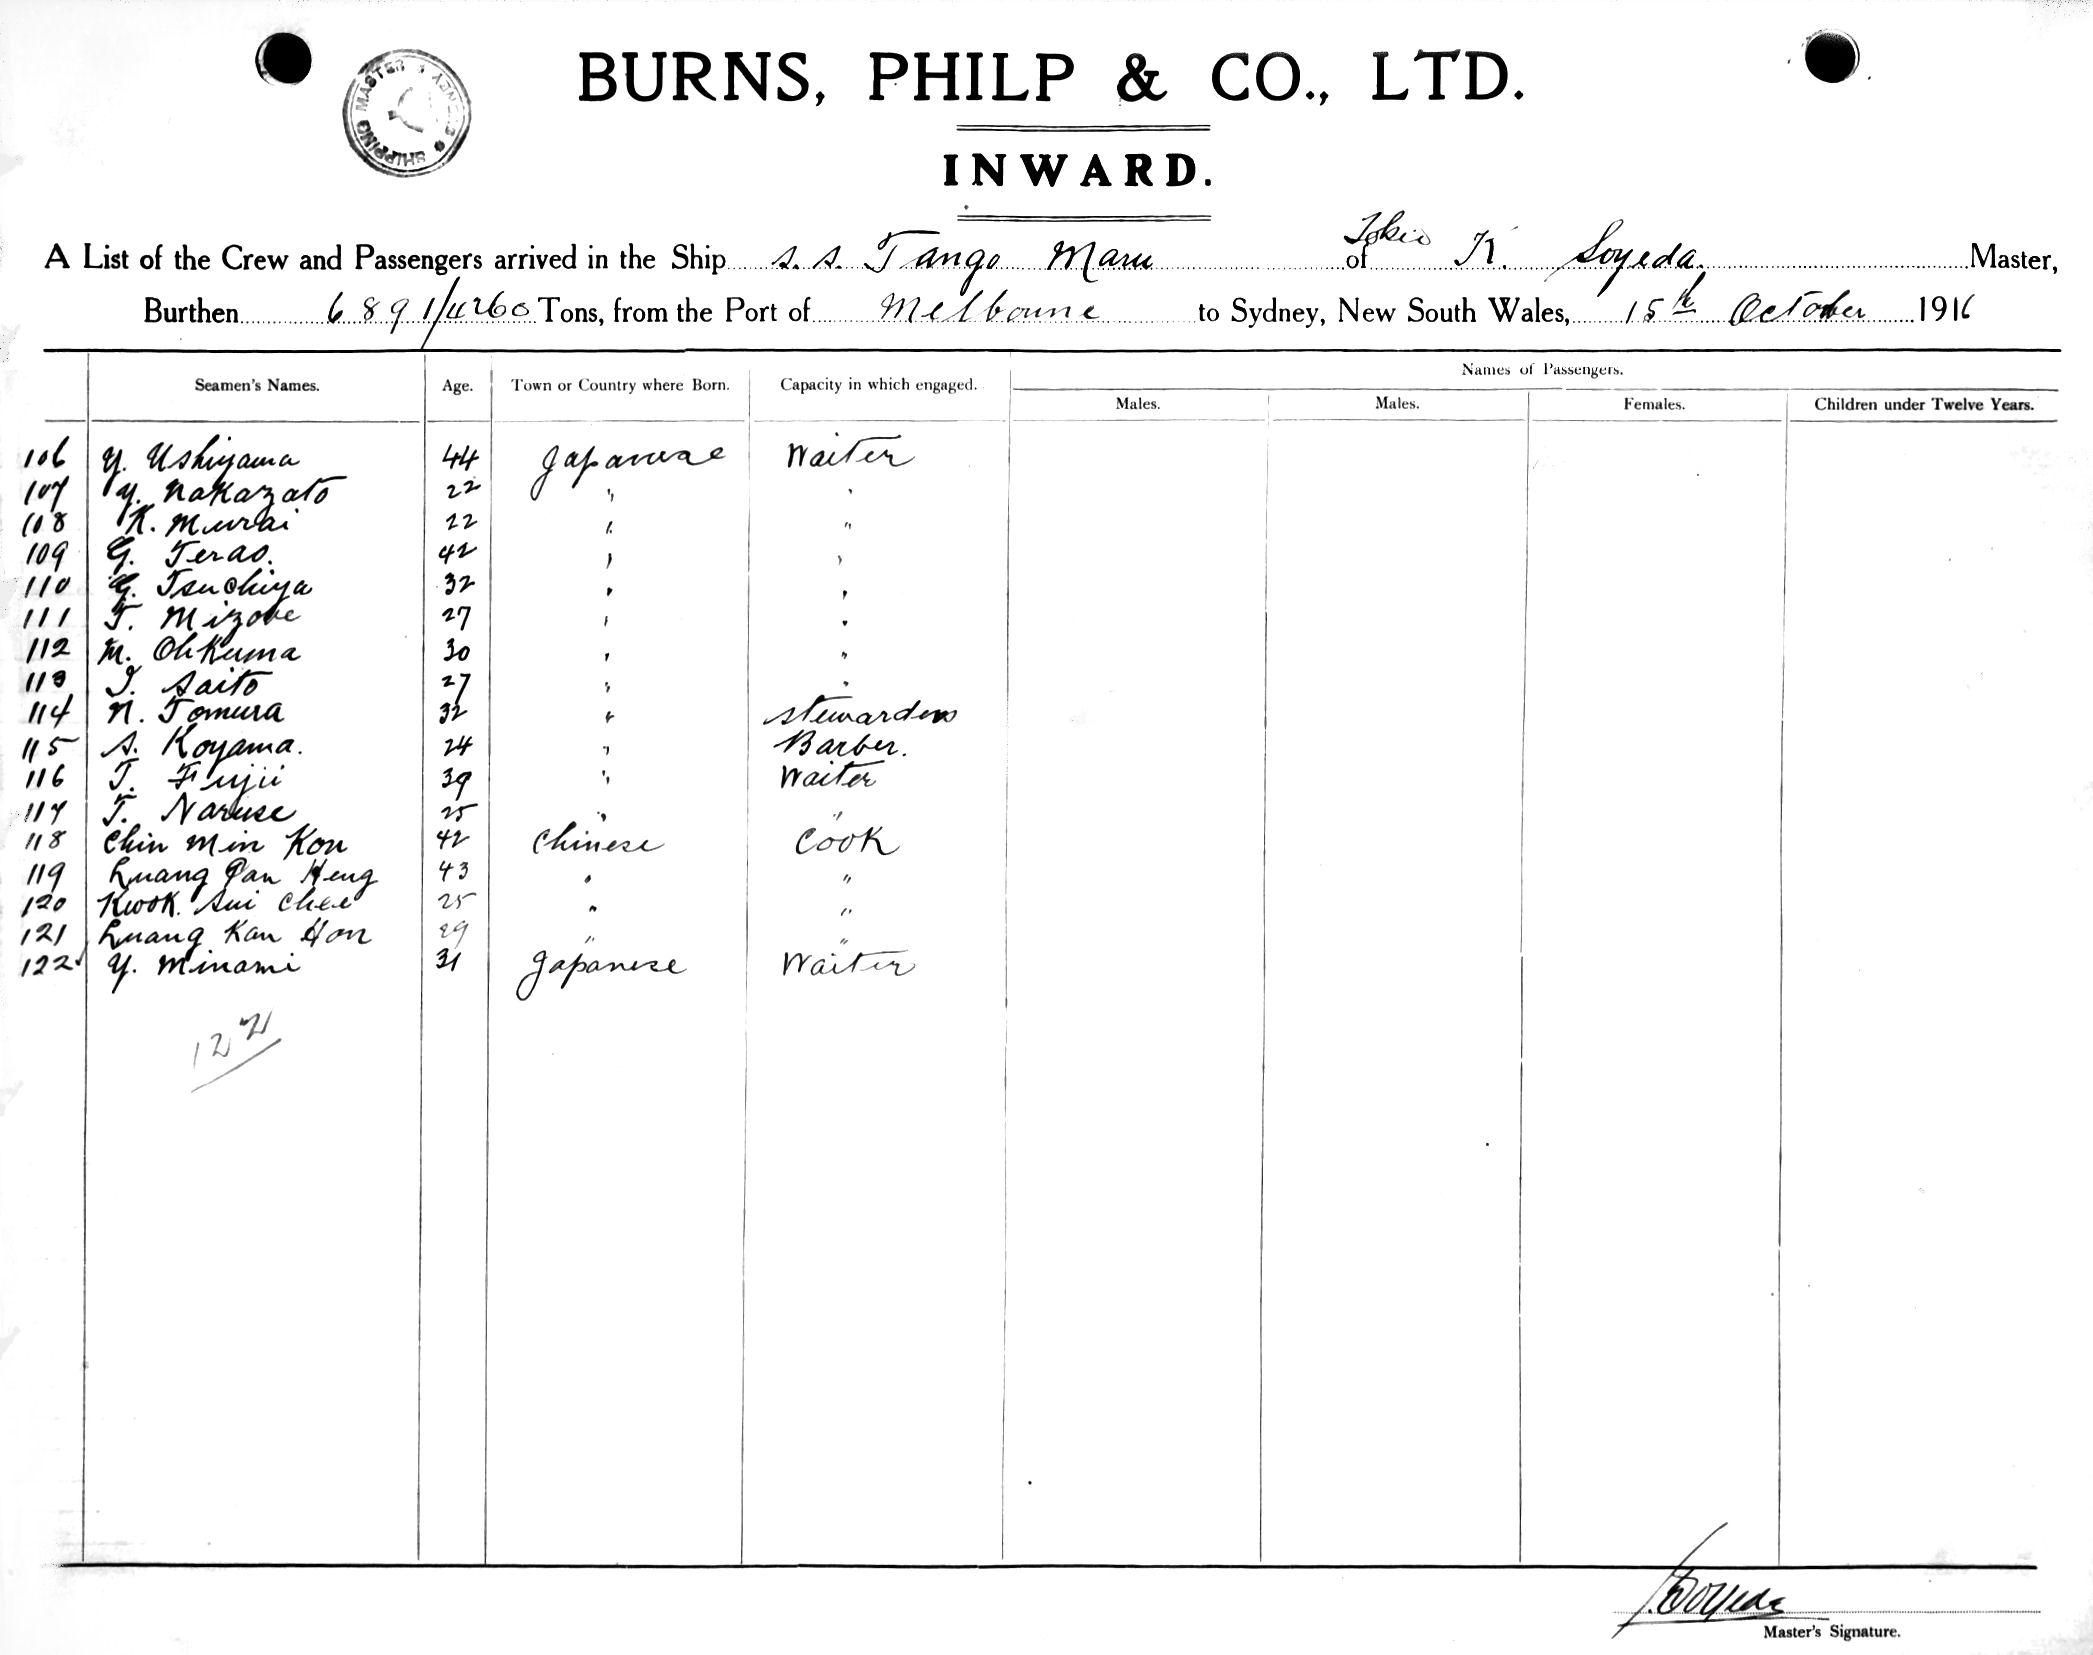 SHIPPING MASTER * SYDNEY *
BURNS, PHILP & CO., LTD.
INWARD.
A List of the Crew and Passengers arrived in the Ship S. S. Tango Maru of Tokio K. Soyeda. Master,
Burthen 6891/4260 Tons, from the Port of Melbourne to Sydney, New South Wales, 15th October 1916
Names of Passengers.
Seamen's Names. Age. Town or Country where Born. Capacity in which engaged. Males. Males. Females. Children under Twelve Years.
106 Y. Ushiyama 44 Japanese Waiter
107 Y. Nakazato 22 " "
108 K. Murai 22 " "
109 G. Terao. 42 " "
110 G. Tsuchiya 32 " "
111 T. Mizobe 27 " "
112 M. Ohkuma 30 " "
113 I. Saito 27 " "
114 N. Tomura 32 " Stewardess
115 S. Koyama. 24 " Barber.
116 T. Fujii 39 " Waiter
117 T. Naruse 25 " "
118 Chin Min Kon 42 Chinese Cook
119 Luang Pan Heng 43 " "
120 Kwok Sui Chee 25 " "
121 Luang Kan Hon 29 " "
122 Y. Minami 31 Japanese Waiter
122
Soyeda
Master's Signature.